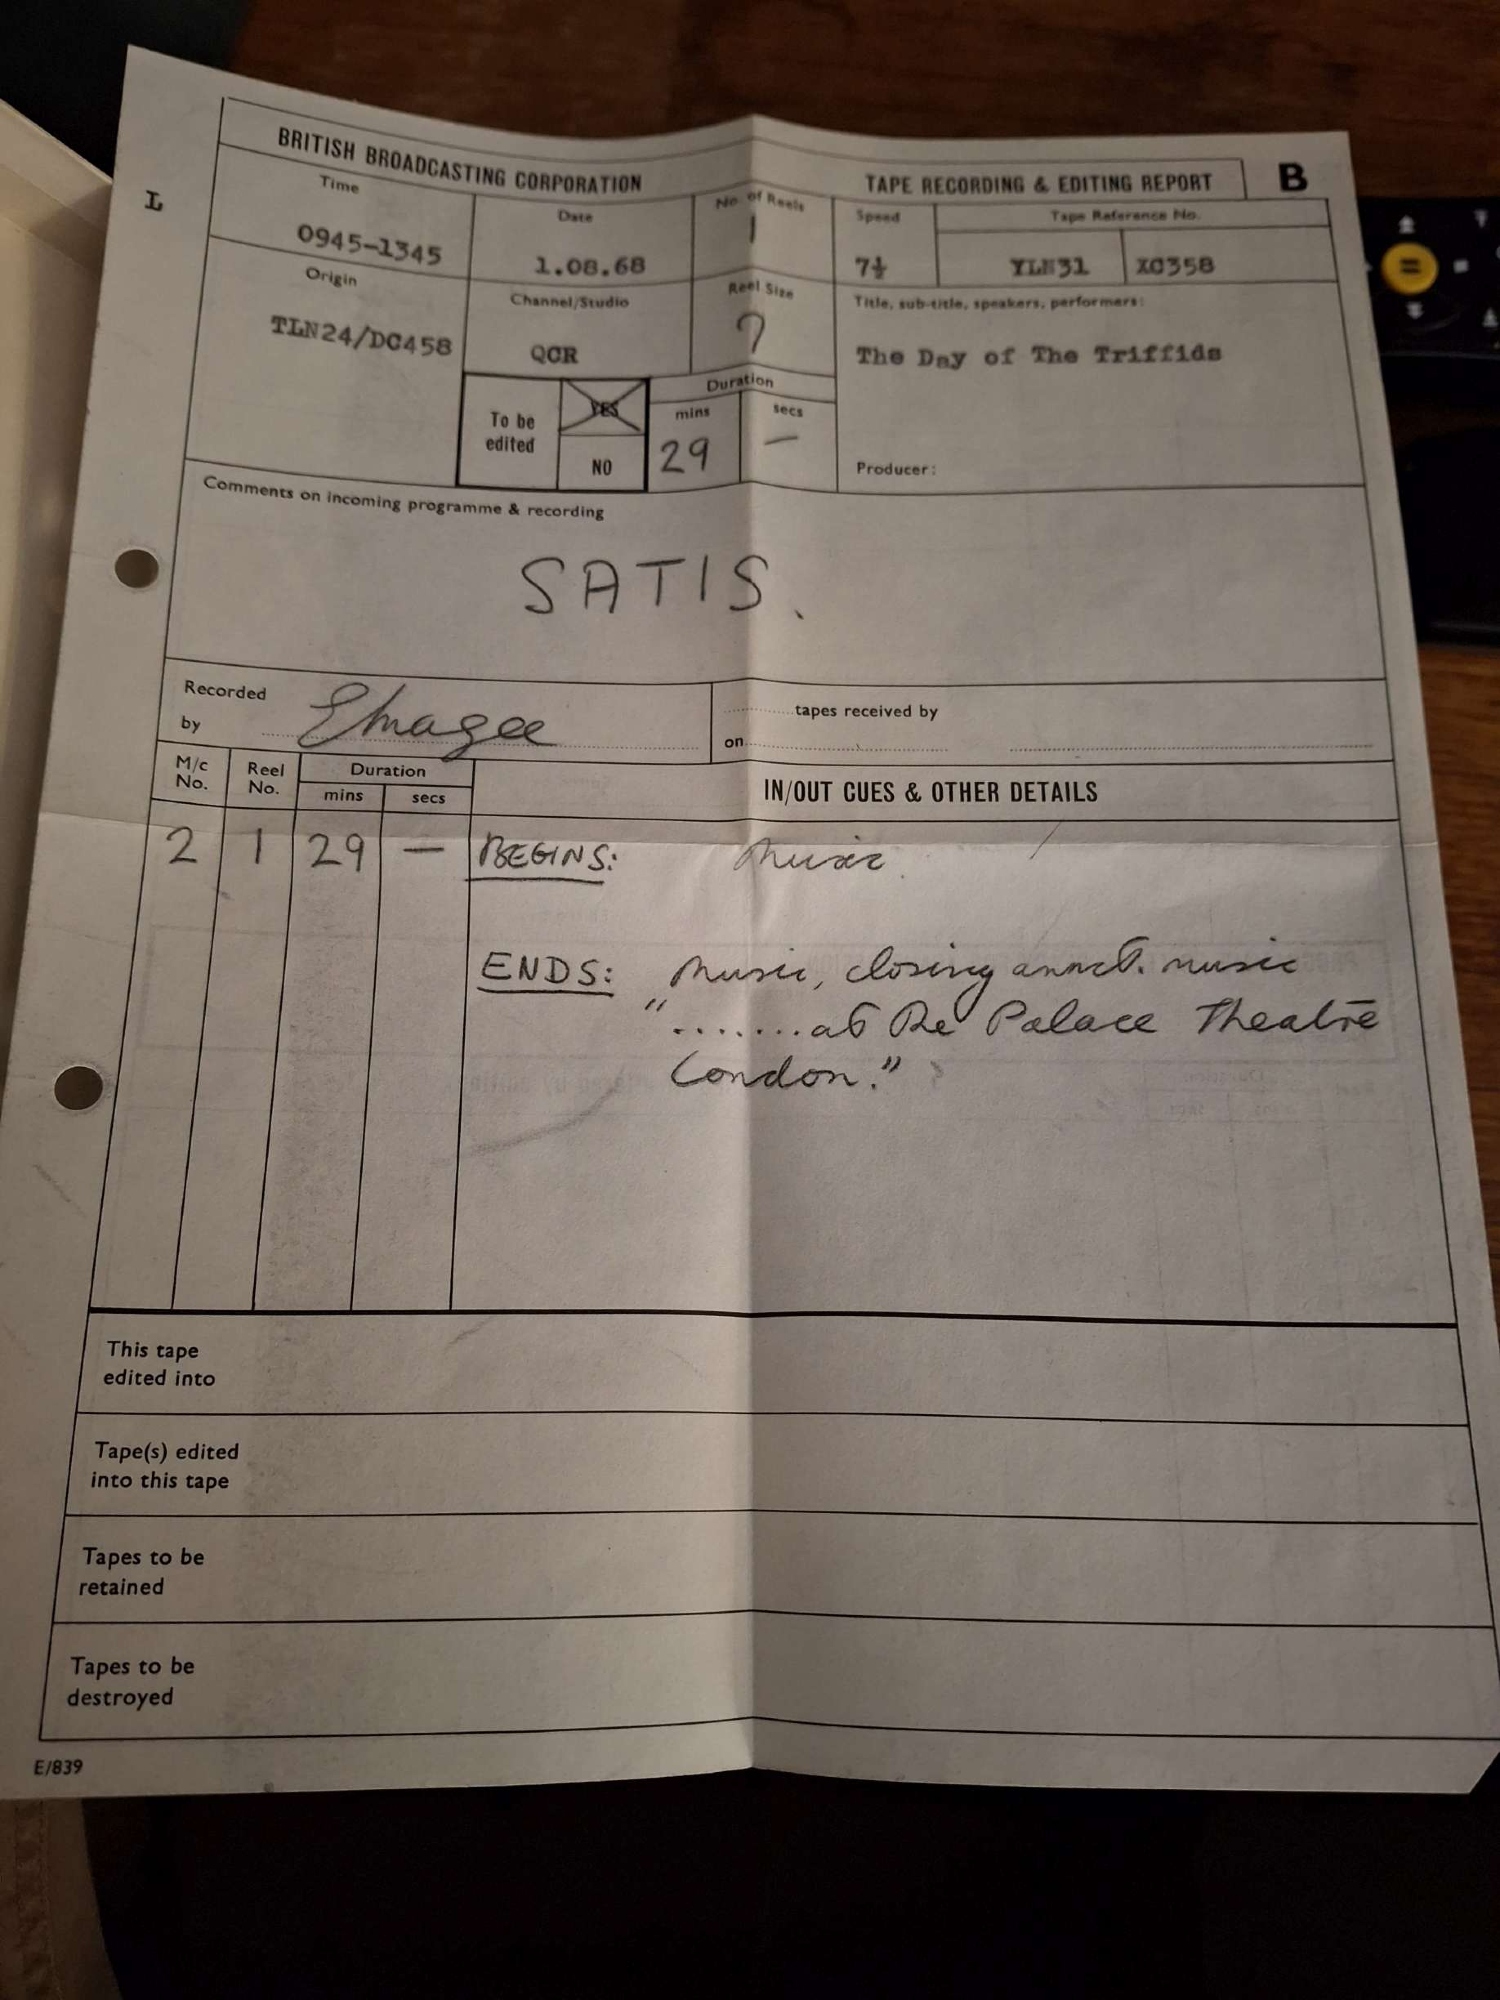 BRITISH BROADCASTING CORPORATION
TAPE RECORDING & EDITING REPORT
B
L
Time
0945-1345
Date
1.08.68
No. of Reels
1
Speed
7½
Tape Reference No.
YLN31 XC358
Origin
TLN24/DC458
Channel/Studio
QCR
Reel Size
7
Title, sub-title, speakers, performers:
The Day of The Triffids
To be
edited
YES
NO
Duration
mins secs
29 —
Producer:
Comments on incoming programme & recording
SATIS.
Recorded
by
tapes received by
on
M/c
No.
Reel
No.
Duration
mins secs
IN/OUT CUES & OTHER DETAILS
2 1 29 — BEGINS: Music
ENDS: Music, closing annct. music
".......at The Palace Theatre
London."
This tape
edited into
Tape(s) edited
into this tape
Tapes to be
retained
Tapes to be
destroyed
E/839